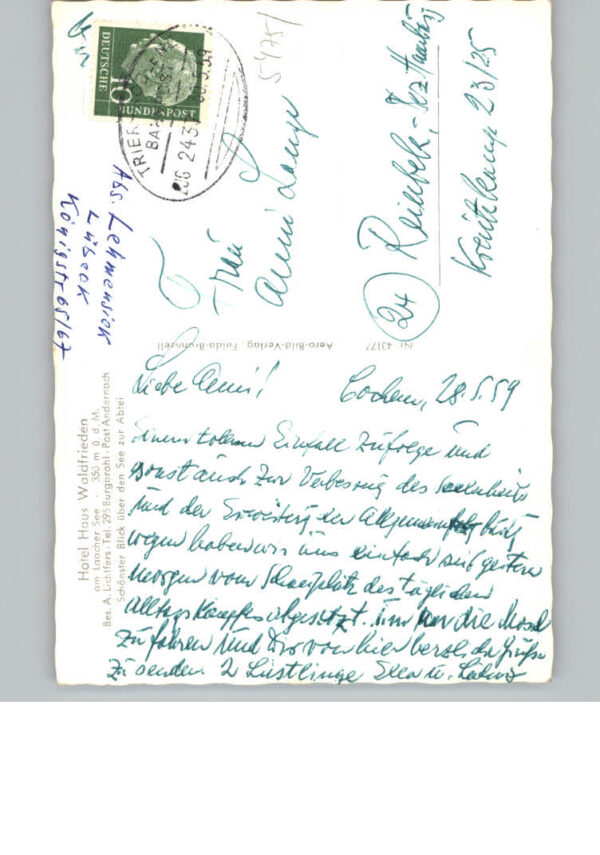 Hotel Haus Waldfrieden
am Laacher See · 350 m ü. d. M.
Bes. A. Lichtfers · Tel. 295 Burgbrohl · Post Andernach
Schönster Blick über den See zur Abtei
Liebe Anni!
Cochem, 28.5.59
Einem tollen Einfall zufolge und
sonst auch zur Verbesserung des
und der Erweiterung der
wegen haben wir uns einfach seit gestern
Morgen vom des täglichen
Alltagskampfes abgesetzt. Um an die Mosel
zu fahren und Dir von hier herzliche Grüße
zu senden. 2 Lüstlinge u. Ludwig
Aero-Bild-Verlag, Fulda-Bronnzell
Nr. 43177
Abs. Lehmensick
Lübeck
Königstr 65/67
DEUTSCHE
BUNDESPOST
10
TRIER
BAHNPOST
ZUG 243
5.59
Frau
Anni Lange
(24) Reinbek, Bez Hamburg
23/25